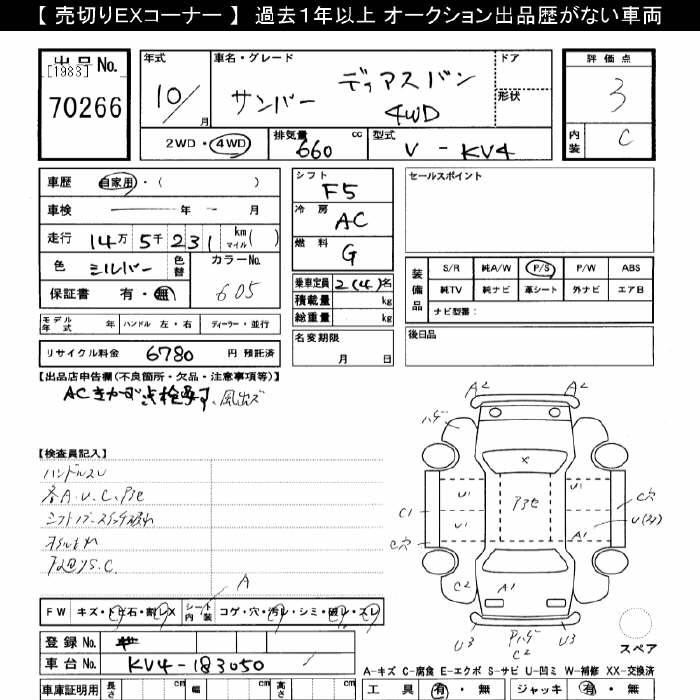 【 売切りEXコーナー 】 過去1年以上 オークション出品歴がない車両
出品 No.
[1983]
70266
年式
10/
月
車名・グレード
サンバー ディアスバン
4WD
ドア
形状
評価点
3
内装
C
2WD・4WD
排気量
660
cc
型式
V - KV4
車歴
自家用・( )
車検
年 月
走行
14万5千231
km
マイル( )
色
シルバー
色替
カラーNo.
605
保証書
有・無
シフト
F5
冷房
AC
燃料
G
乗車定員
2(4)名
積載量
kg
総重量
kg
名変期限
月 日
セールスポイント
装備品
S/R 純A/W P/S P/W ABS
純TV 純ナビ 革シート 外ナビ エアB
ナビ型番:
後日品
モデル年式
年
ハンドル 左・右
ディーラー・並行
リサイクル料金
6780
円 預託済
【出品店申告欄(不良箇所・欠品・注意事項等)】
ACきかず点検要す、風出ズ
【検査員記入】
ハンドルスレ
各A.U.C.アセ
オイルもれ
下廻りS.C.
A
FW
キズ・トビ石・割レX
シート内装
コゲ・穴・汚レ・シミ・破レ・スレ
登録 No.
車台 No.
KV4-183050
車庫証明用
長さ
cm
幅
cm
高さ
cm
A2
A2
ハゲ
X
U1
U1
アセ
U1
C穴
C1
U1
A1
C穴
C2
A1
U3
C2
U3
スペア
A-キズ C-腐食 E-エクボ S-サビ U-凹ミ W-補修 XX-交換済
工具
有・無
ジャッキ
有・無